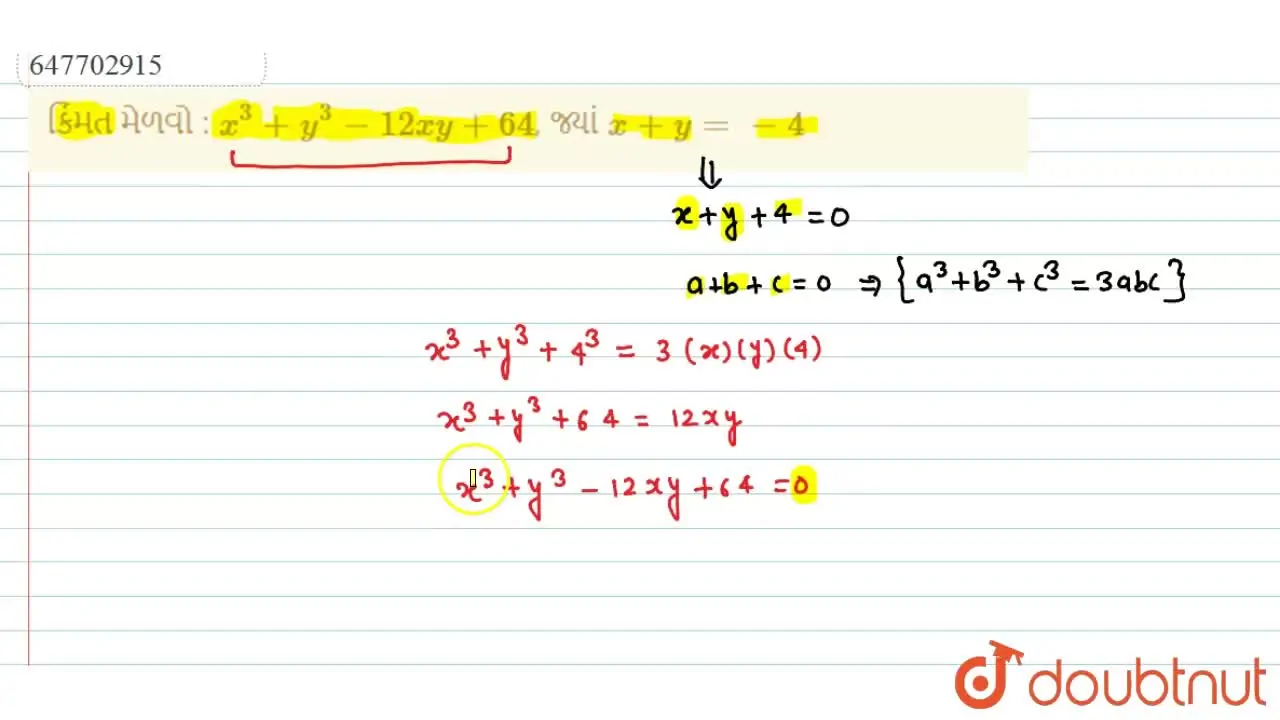 647702915
કિંમત મેળવો : x³ + y³ − 12xy + 64, જ્યાં x + y = −4
⇓
x + y + 4 = 0
a + b + c = 0 ⇒ {a³ + b³ + c³ = 3abc}
x³ + y³ + 4³ = 3 (x)(y)(4)
x³ + y³ + 64 = 12xy
x³ + y³ − 12xy + 64 = 0
doubtnut